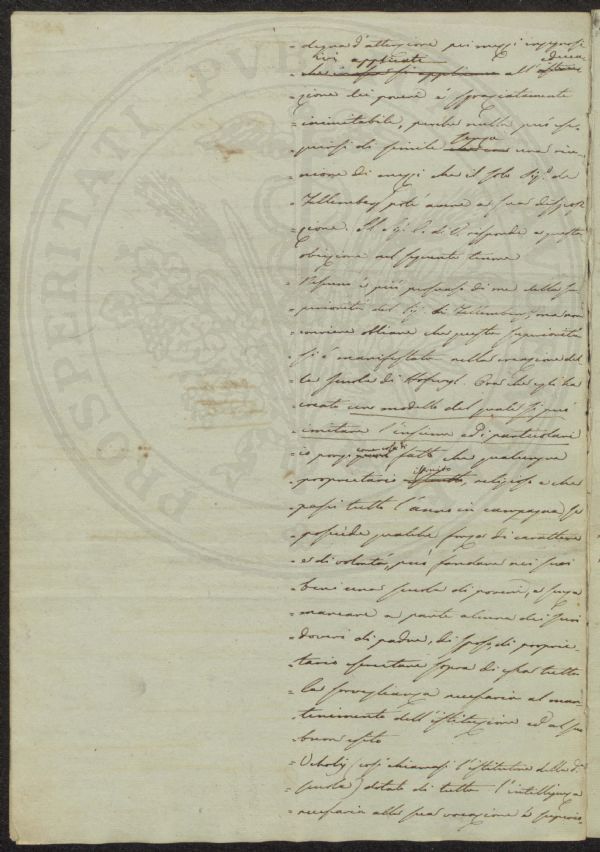 = degna d'attenzione pei mezzi ingegnosi
ivi applicati educa
all'
= zione dei poveri è sgraziatamente
= inimitabile, perché nulla può ese=
= guirsi di simile senza una riu=
= nione di mezzi che il solo Sig.r de
= Fellemberg poté avere a sua dispo=
= zione. Il Sig. C. d. C. risponde a questa
obiezione nel seguente tenore
= Nessuno è più persuaso di me della su
= periorità del Sig. di Fellemberg, ma non
= conviene obliare che questa superiorità
= si è manifestata nella creazione del
= la scuola di Hofwyl. Ora che egli ha
= creato un modello del quale si può
= imitare l'insieme ed i particolari
= io fatti che qualunque
= proprietario istruito, religioso e che
= passi tutto l'anno in campagna, se
= possiede qualche forza di carattere
= e di volontà, può fondare nei suoi
= beni una scuola di poveri, e senza
= mancare a parte alcuna dei suoi
= doveri di padre, di sposo, di proprie=
= tario esercitare sopra di essa tutta
= la sorveglianza necessaria al man=
= tenimento dell'istituzione ed al suo
= buon esito
= Veholy (così chiamasi l'istitutore della d.a
= scuola) dotato di tutta l'intelligenza
= necessaria alla sua vocazione è
PROSPERITATI PUBLICAE